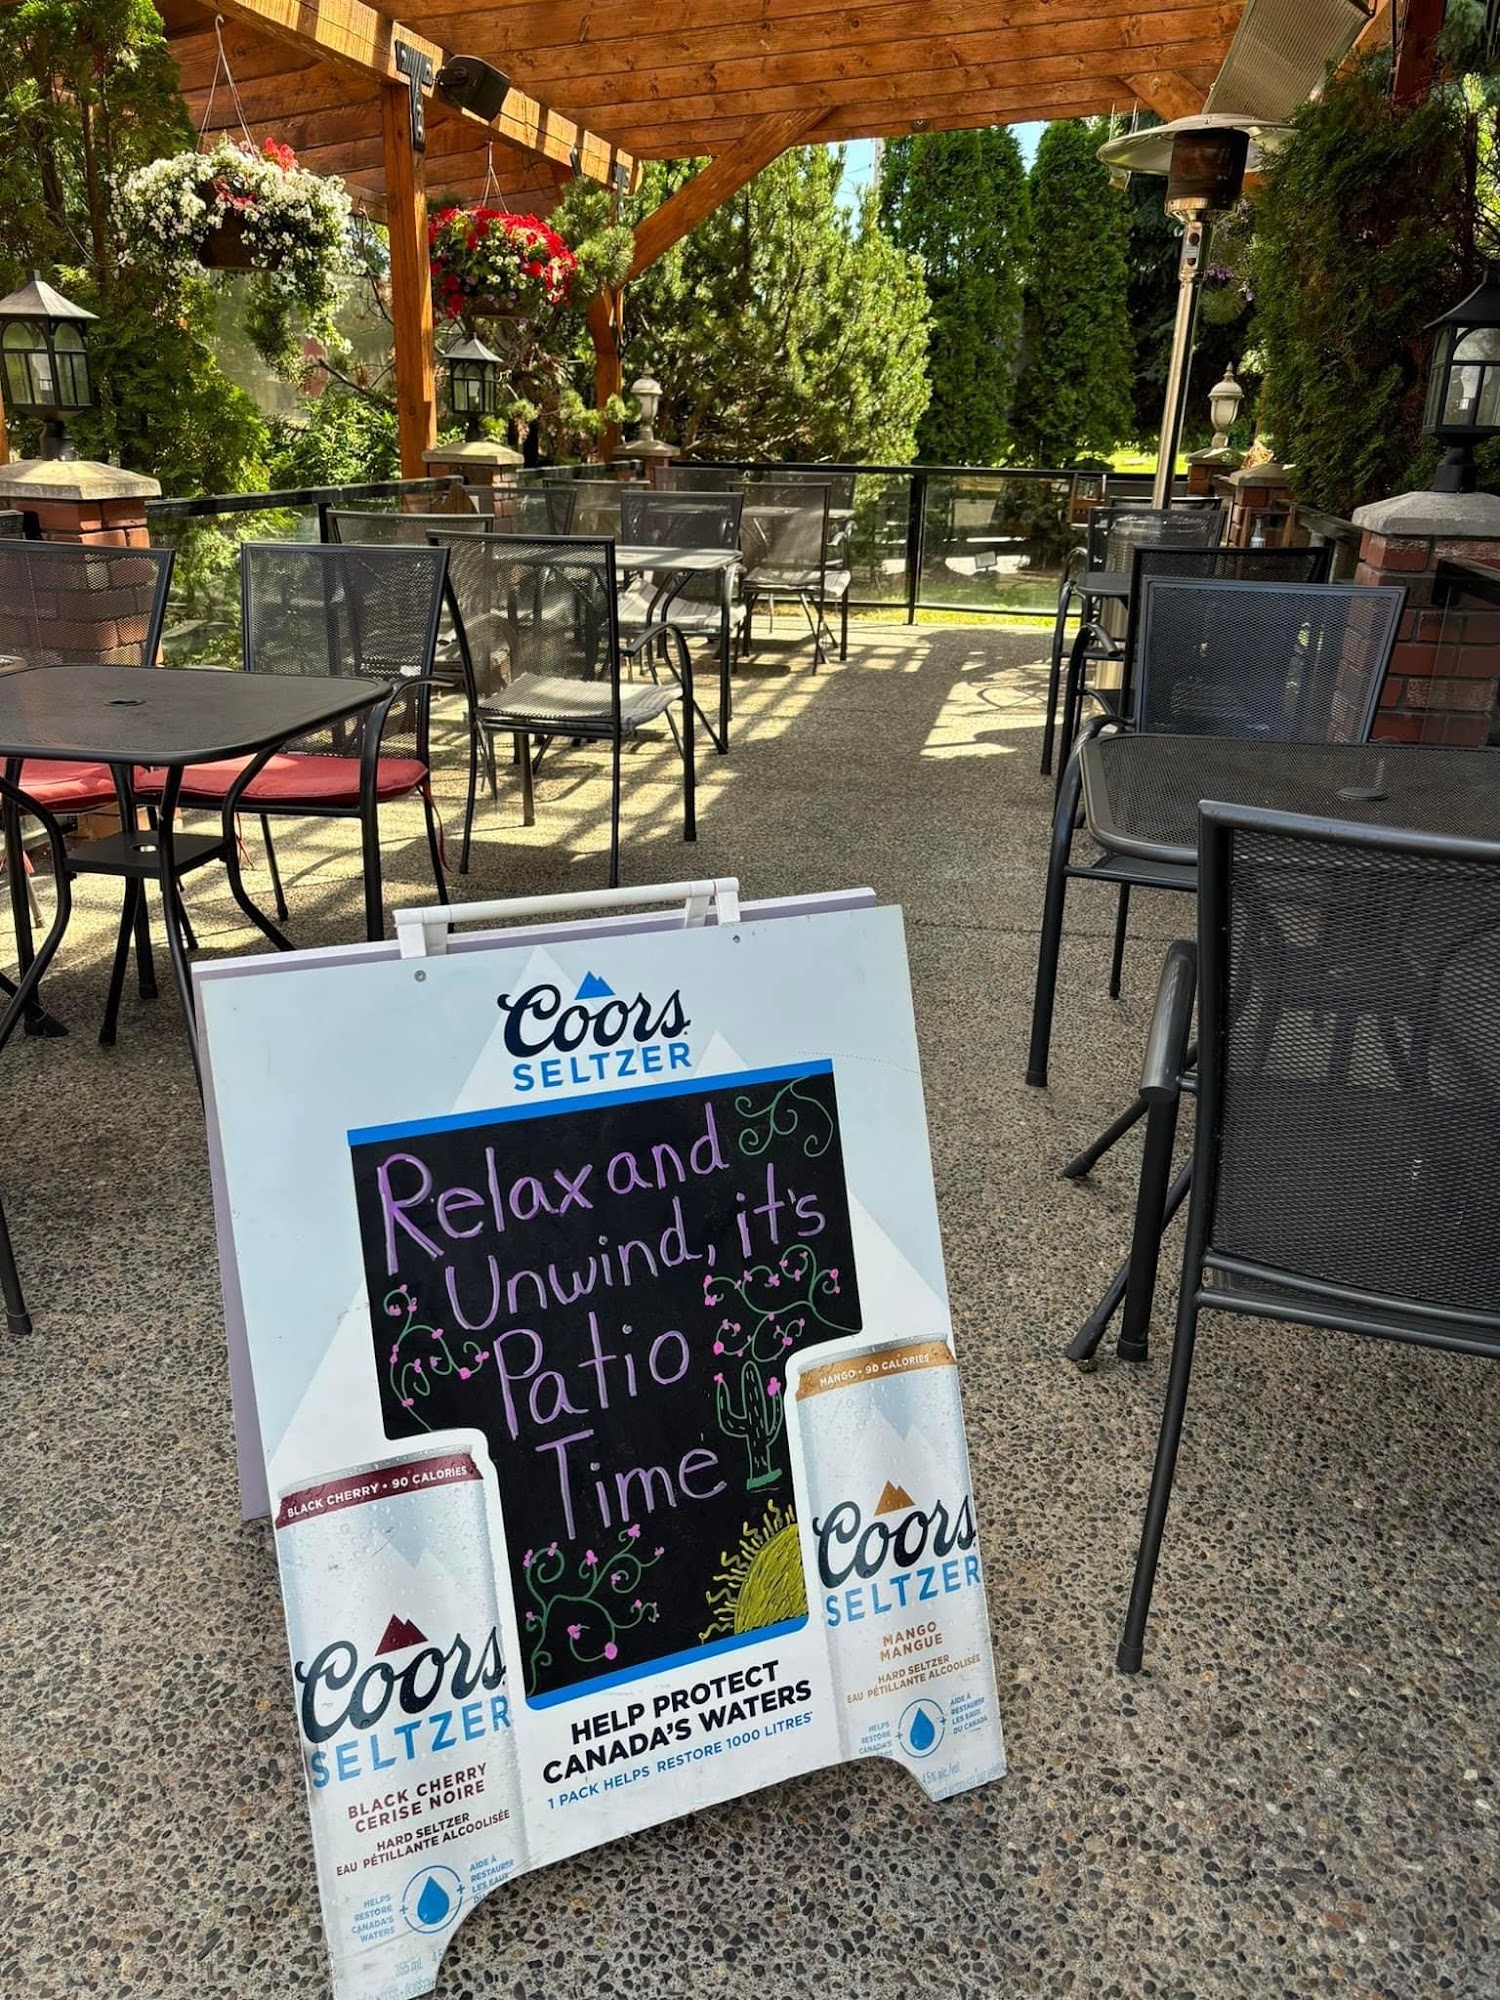 Coors
SELTZER
Relax and
Unwind, it's
Patio
Time
MANGO • 90 CALORIES
Coors
SELTZER
MANGO
MANGUE
HARD SELTZER
EAU PÉTILLANTE ALCOOLISÉE
HELPS
RESTORE
CANADA'S
AIDE À
RESTAURER
LES EAUX
DU CANADA
BLACK CHERRY • 90 CALORIES
Coors
SELTZER
BLACK CHERRY
CERISE NOIRE
HARD SELTZER
EAU PÉTILLANTE ALCOOLISÉE
HELPS
RESTORE
CANADA'S
WATERS
AIDE À
RESTAURER
LES EAUX
355 ml
HELP PROTECT
CANADA'S WATERS
1 PACK HELPS RESTORE 1000 LITRES*